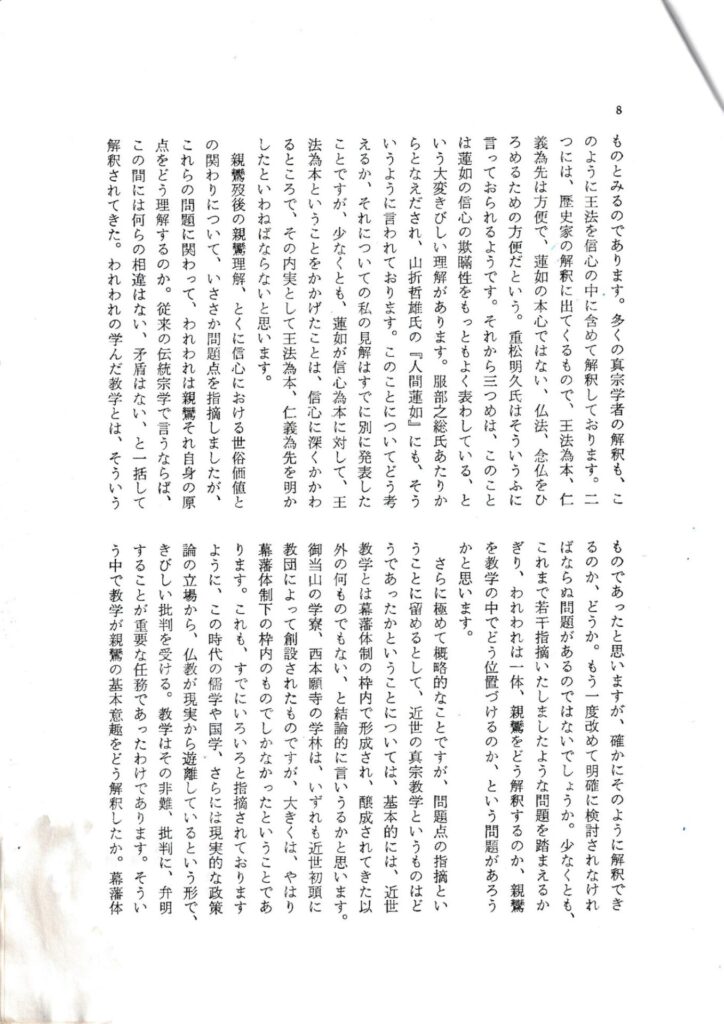 8
ものとみるのであります。多くの真宗学者の解釈も、こ
のように王法を信心の中に含めて解釈しております。二
つには、歴史家の解釈に出てくるもので、王法為本、仁
義為先は方便で、蓮如の本心ではない、仏法、念仏をひ
ろめるための方便だという。重松明久氏はそういうふに
言っておられるようです。それから三つめは、このこと
は蓮如の信心の欺瞞性をもっともよく表わしている、と
いう大変きびしい理解があります。服部之総氏あたりか
らとなえだされ、山折哲雄氏の『人間蓮如』にも、そう
いうように言われております。このことについてどう考
えるか、それについての私の見解はすでに別に発表した
ことですが、少なくとも、蓮如が信心為本に対して、王
法為本ということをかかげたことは、信心に深くかかわ
るところで、その内実として王法為本、仁義為先を明か
したといわねばならないと思います。
親鸞歿後の親鸞理解、とくに信心における世俗価値と
の関わりについて、いささか問題点を指摘しましたが、
これらの問題に関わって、われわれは親鸞それ自身の原
点をどう理解するのか。従来の伝統宗学で言うならば、
この間には何らの相違はない、矛盾はない、と一括して
解釈されてきた。われわれの学んだ教学とは、そういう
ものであったと思いますが、確かにそのように解釈でき
るのか、どうか。もう一度改めて明確に検討されなけれ
ばならぬ問題があるのではないでしょうか。少なくとも、
これまで若干指摘いたしましたような問題を踏まえるか
ぎり、われわれは一体、親鸞をどう解釈するのか、親鸞
を教学の中でどう位置づけるのか、という問題があろう
かと思います。
さらに極めて概略的なことですが、問題点の指摘とい
うことに留めるとして、近世の真宗教学というものはど
うであったかということについては、基本的には、近世
教学とは幕藩体制の枠内で形成され、醸成されてきた以
外の何ものでもない、と結論的に言いうるかと思います。
御当山の学寮、西本願寺の学林は、いずれも近世初頭に
教団によって創設されたものですが、大きくは、やはり
幕藩体制下の枠内のものでしかなかったということであ
ります。これも、すでにいろいろと指摘されております
ように、この時代の儒学や国学、さらには現実的な政策
論の立場から、仏教が現実から遊離しているという形で、
きびしい批判を受ける。教学はその非難、批判に、弁明
することが重要な任務であったわけであります。そうい
う中で教学が親鸞の基本意趣をどう解釈したか。幕藩体